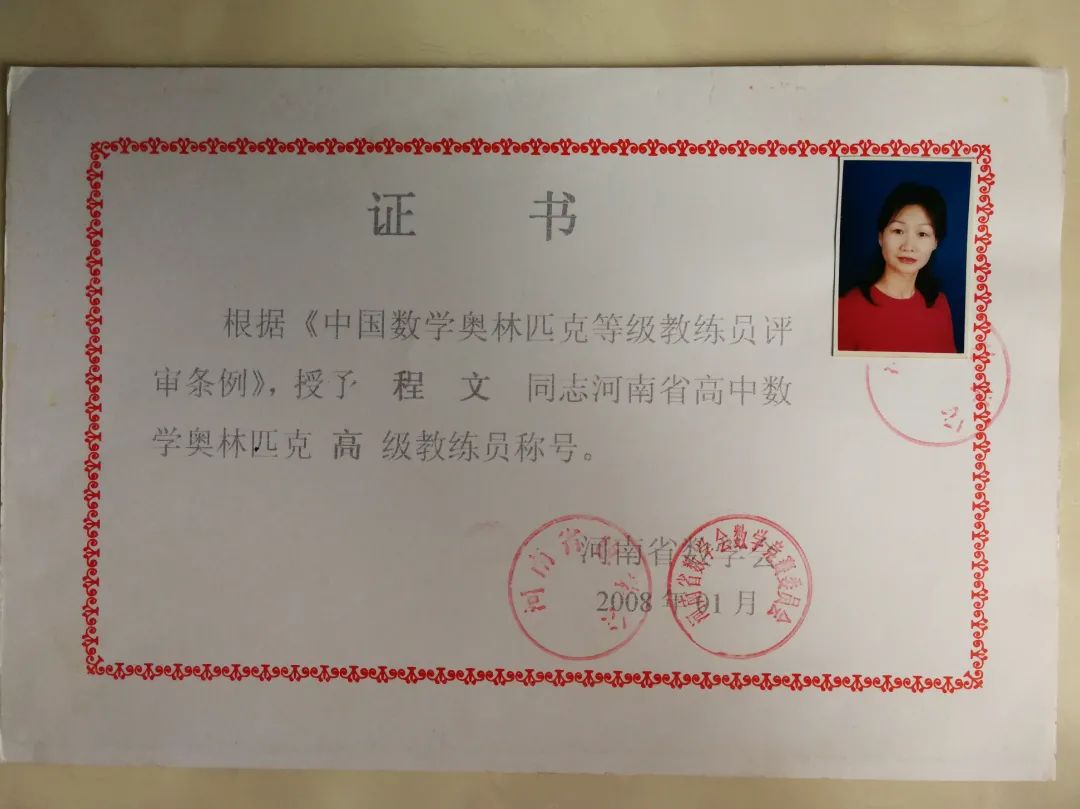 证 书
根据《中国数学奥林匹克等级教练员评
审条例》，授予 程 文 同志河南省高中数
学奥林匹克 高 级教练员称号。
河南省数学会
2008 年 01 月
河南省数学会